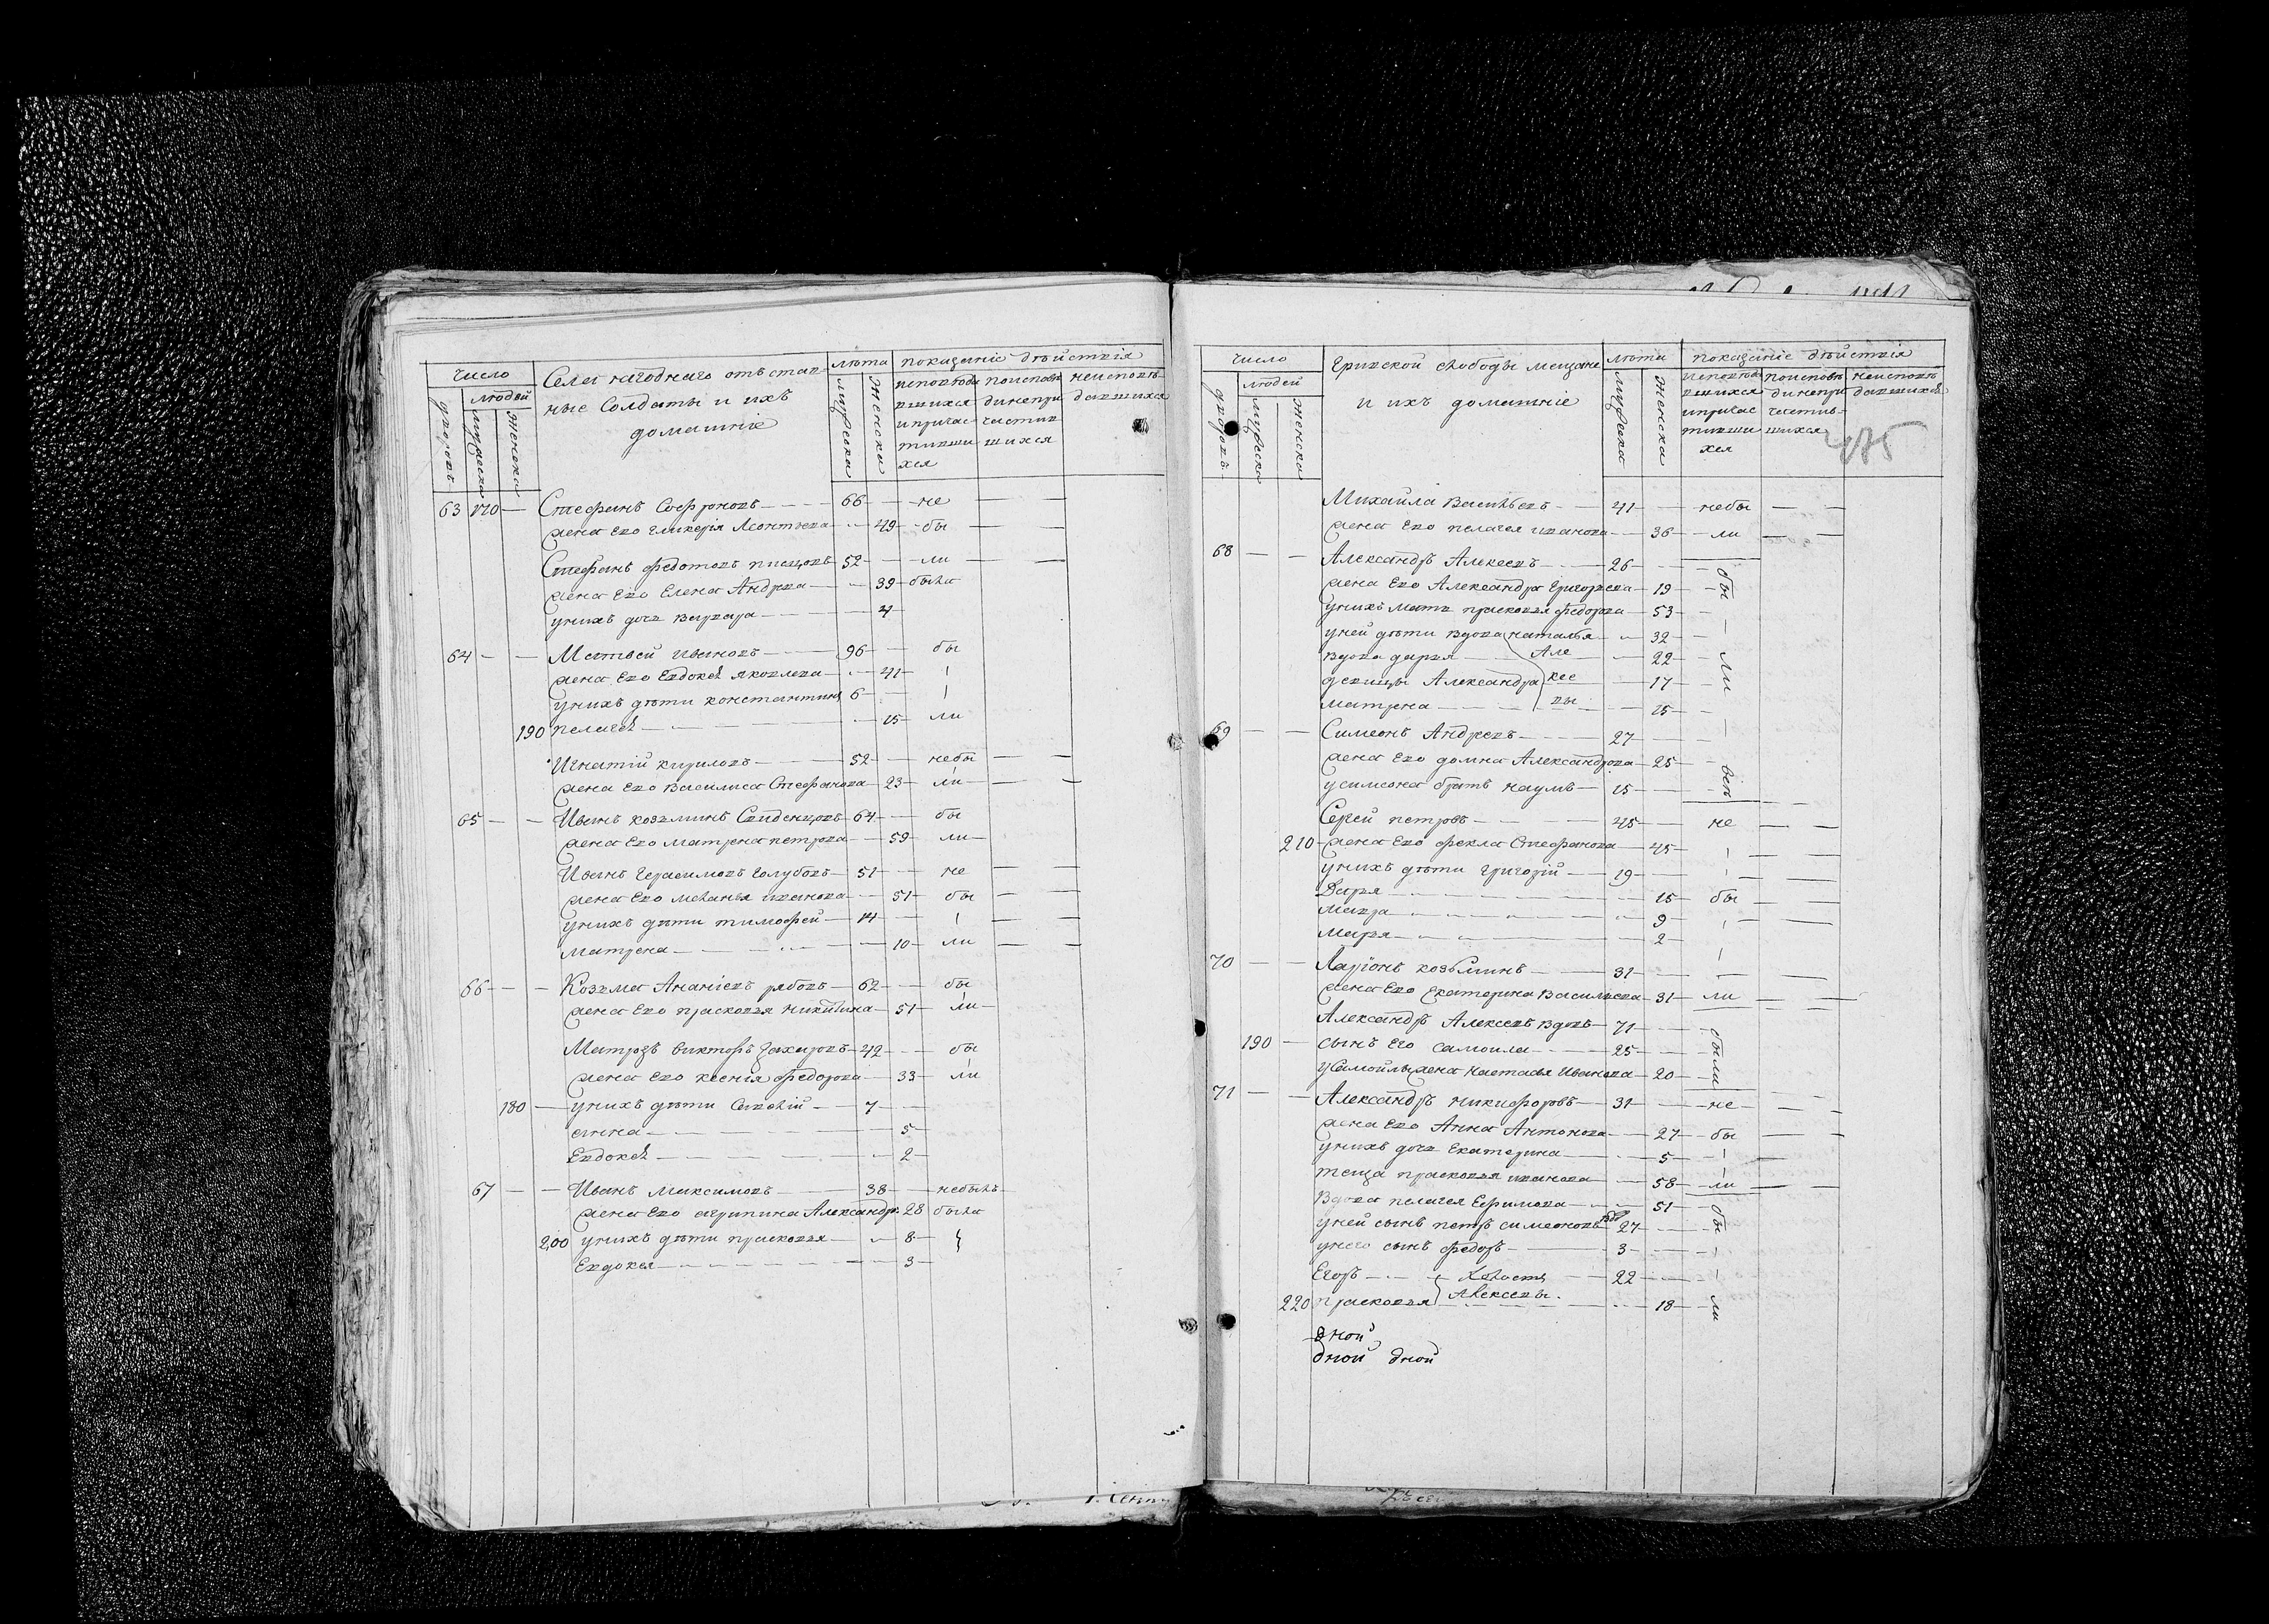 число
людей
дворовъ
мужеска
женска
Села нагоднаго отъстав-
ные Солдаты и ихъ
домашніе
лѣта
мужеска
женска
показаніе дѣйствія
исповѣда
вшихся
и причас
тивши
хся
по исповѣ
ди непри
частив
шихся
неисповѣ-
давшихся
63 170 — Стефанъ Софроновъ — 66 — не — —
жена Ево гликерія Леонтьева — 49 — бы — —
Стефанъ федотовъ 52 — ли — —
жена Ево Елена Андрева — 39 — была
у нихъ дочь варвара — 4
64 — — Матвей ивановъ — 96 — бы
жена Ево Евдокея яковлева — 41 —
у нихъ дѣти константинъ 6 —
190 пелагея — 15 — ли
Игнатій кириловъ — 52 — небы — —
жена Ево василиса Стефанова — 23 — ли — —
65 — — Иванъ козминъ 64 — бы
жена Ево матрена петрова — 59 — ли —
Иванъ Герасимовъ голубовъ — 51 — не — —
жена Ево меланья иванова — 51 — бы — —
у нихъ дѣти тимофей — 14 — — —
матрена — 10 — ли — —
66 — — Козма Ананіевъ рябовъ — 62 — бы
жена Ево прасковья никитина — 51 — ли —
Матрозъ викторъ захаровъ — 42 — бы
жена Ево ксенія федорова — 33 — ли
180 — у нихъ дѣти 7 —
анна — 5 —
Евдокея — 2 —
67 — — Иванъ Максимовъ — 38 — небылъ —
жена Ево агрипина Александр. 28 была
200 у нихъ дѣти прасковья — 8 —
Евдокея — 3 —
число
людей
дворовъ
мужеска
женска
Ерикской слободы мещане
и ихъ домашніе
лѣта
мужеска
женска
показаніе дѣйствія
исповѣда
вшихся
и причас
тивши
хся
по исповѣ
ди непри
частив-
шихся
неисповѣ
давшихся
475
Михайла Васильевъ — 41 — небы — —
жена Ево пелагея иванова — 36 — ли — —
68 — — Александръ Алексевъ — 26 —
жена Ево Александра Григорьева — 19 — бы
у нихъ мать прасковья федорова — 53 —
у ней дѣти вдова наталья — 32 —
вдова дарья — Але — 22 — ли
девицы Александра ксе — 17 —
матрена — вы — 15 —
69 — — Симеонъ Андревъ — 27 —
жена Ево домна Александрова — 25 — всѣ
у симеона братъ наумъ — 15 —
Сергей петровъ — 45 — не — —
210 — жена Ево фекла Стефанова — 45 — —
у нихъ дѣти григорій — 19 — —
Дарья — 15 — бы — —
мавра — 9 — —
марья — 2 —
70 — — Ларіонъ козьминъ — 31 — —
жена Ево Екатерина Васильева — 31 — ли — —
Александръ Алексевъ вдовъ — 71 — были
190 — сынъ Его самоила — 25 —
у Самойлы жена настасья Иванова — 20 —
71 — — Александръ никифоровъ — 31 — не — —
жена Ево Анна Антонова — 27 — бы — —
у нихъ дочь Екатерина — 5 — —
теща прасковья иванова — 58 — ли — —
вдова пелагея Ефимова — 51 — бы
у ней сынъ петръ симеоновъ вдов 27 —
у него сынъ федоръ — 3 —
Егоръ — Холосты — 22 —
220 прасковья Алексевы. — 18 — ли
дной
дной дной